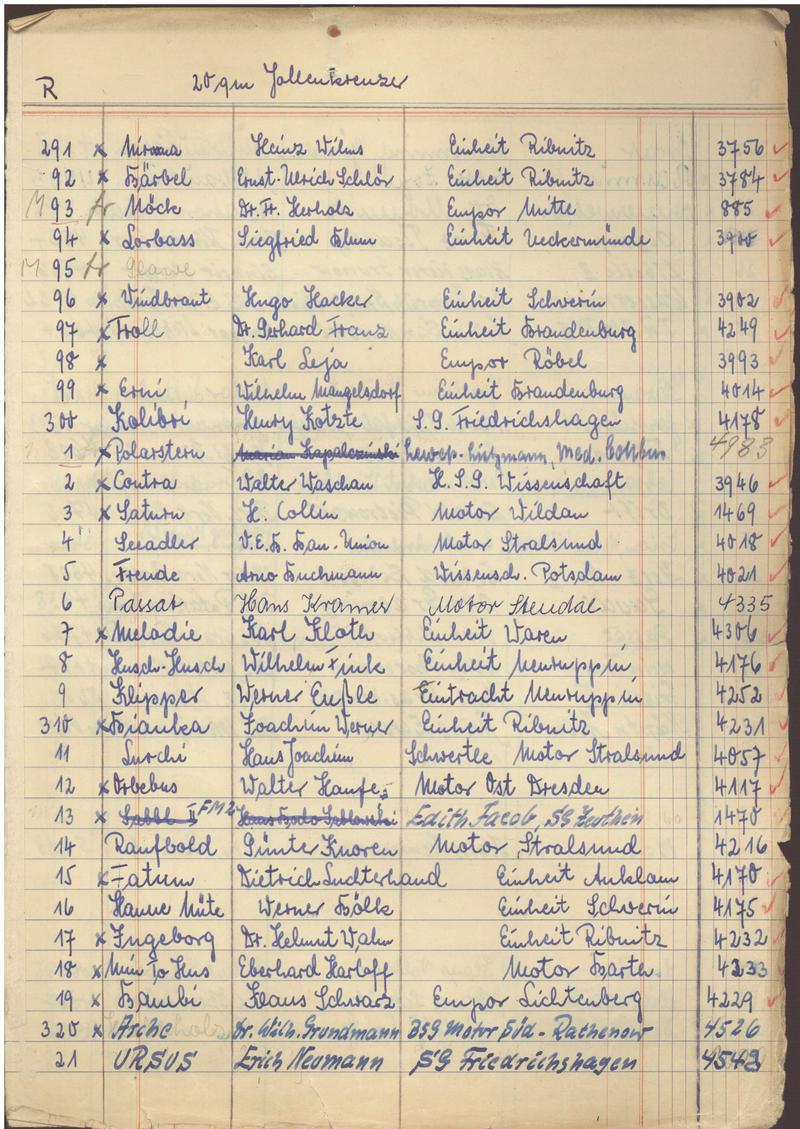 R 20 qm Jollenkreuzer
291 x Heinz Wilms Einheit Ribnitz 3756
92 x Bärbel Ernst-Ulrich Schlör Einheit Ribnitz 3784
M 93 fr Möck Dr. Fr. Herholz Empor Mitte 885
94 x Lorbass Siegfried Blum Einheit Ueckermünde
M 95 fr
96 x Windbraut Hugo Hacker Einheit Schwerin 3902
97 x Troll Dr. Gerhard Franz Einheit Brandenburg 4249
98 x Karl Leja Empor Röbel 3993
99 x Erni Wilhelm Mangelsdorf Einheit Brandenburg 4014
300 Kolibri Henry Kotzte S.G. Friedrichshagen 4178
1 x Polarstern Med. Cottbus 4983
2 x Contra Walter Waschau H.S.G. Wissenschaft 3946
3 x Saturn H. Collin Motor Wildau 1469
4 Seeadler V.E.B. Bau-Union Motor Stralsund 4018
5 Freude Arno Buchmann Wissensch. Potsdam 4021
6 Passat Hans Kramer Motor Stendal 4335
7 x Melodie Karl Kloth Einheit Waren 4306
8 Husch-Husch Wilhelm Fink Einheit Neuruppin 4176
9 Klipper Werner Eußle Eintracht Neuruppin 4252
310 x Bianka Joachim Werner Einheit Ribnitz 4231
11 Lurchi Hans Joachim Schwertle Motor Stralsund 4057
12 x Orbebus Walter Haufe Motor Ost Dresden 4117
13 x FM2 Edith Jacob, SG Zeuthen 1470
14 Raufbold Günter Knoren Motor Stralsund 4216
15 x Fatum Dietrich Ludterhand Einheit Anklam 4170
16 Hanne Nüte Werner Bölk Einheit Schwerin 4175
17 x Ingeborg Dr. Helmut Wahn Einheit Ribnitz 4232
18 x Min To Hus Eberhard Harloff Motor Barth 4233
19 x Bambi Klaus Schwarz Empor Lichtenberg 4229
320 x Arche Dr. Wilh. Grundmann BSG Motor Süd-Rathenow 4526
21 URSUS Erich Neumann SG Friedrichshagen